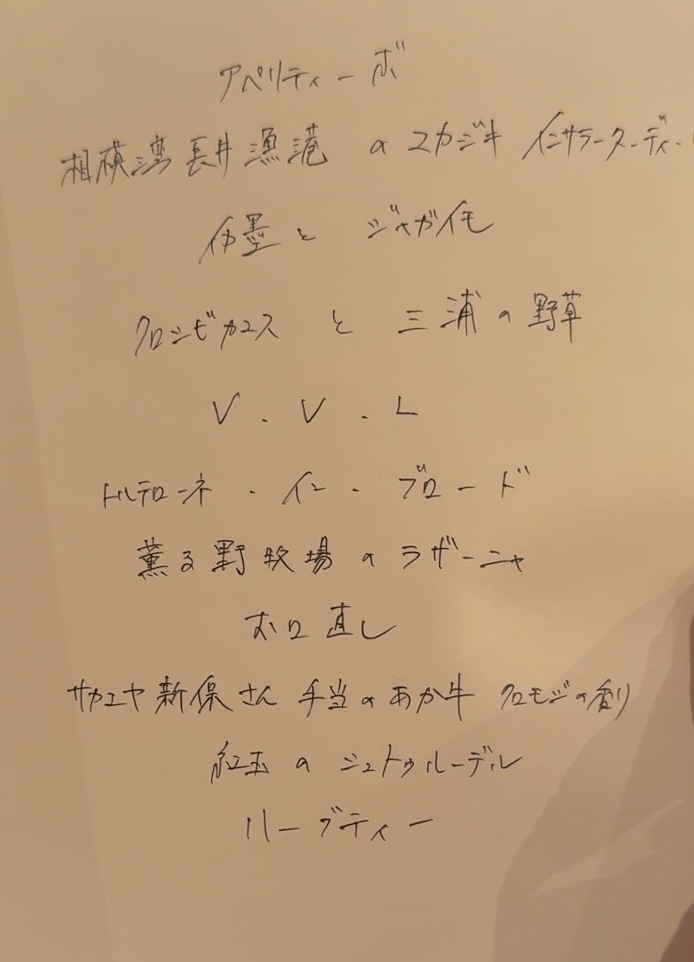 アペリティーボ
相模湾長井漁港 の マカジキ インサラータ・ディ・
イカ墨と ジャガイモ
クロシビカマス と 三浦の野草
V . V . L
トルテローネ・イン・ブロード
薫る野牧場のラザーニャ
お口直し
サカエヤ新保さん 手当のあか牛 クロモジの香り
紅玉 の シュトゥルーデル
ハーブティー